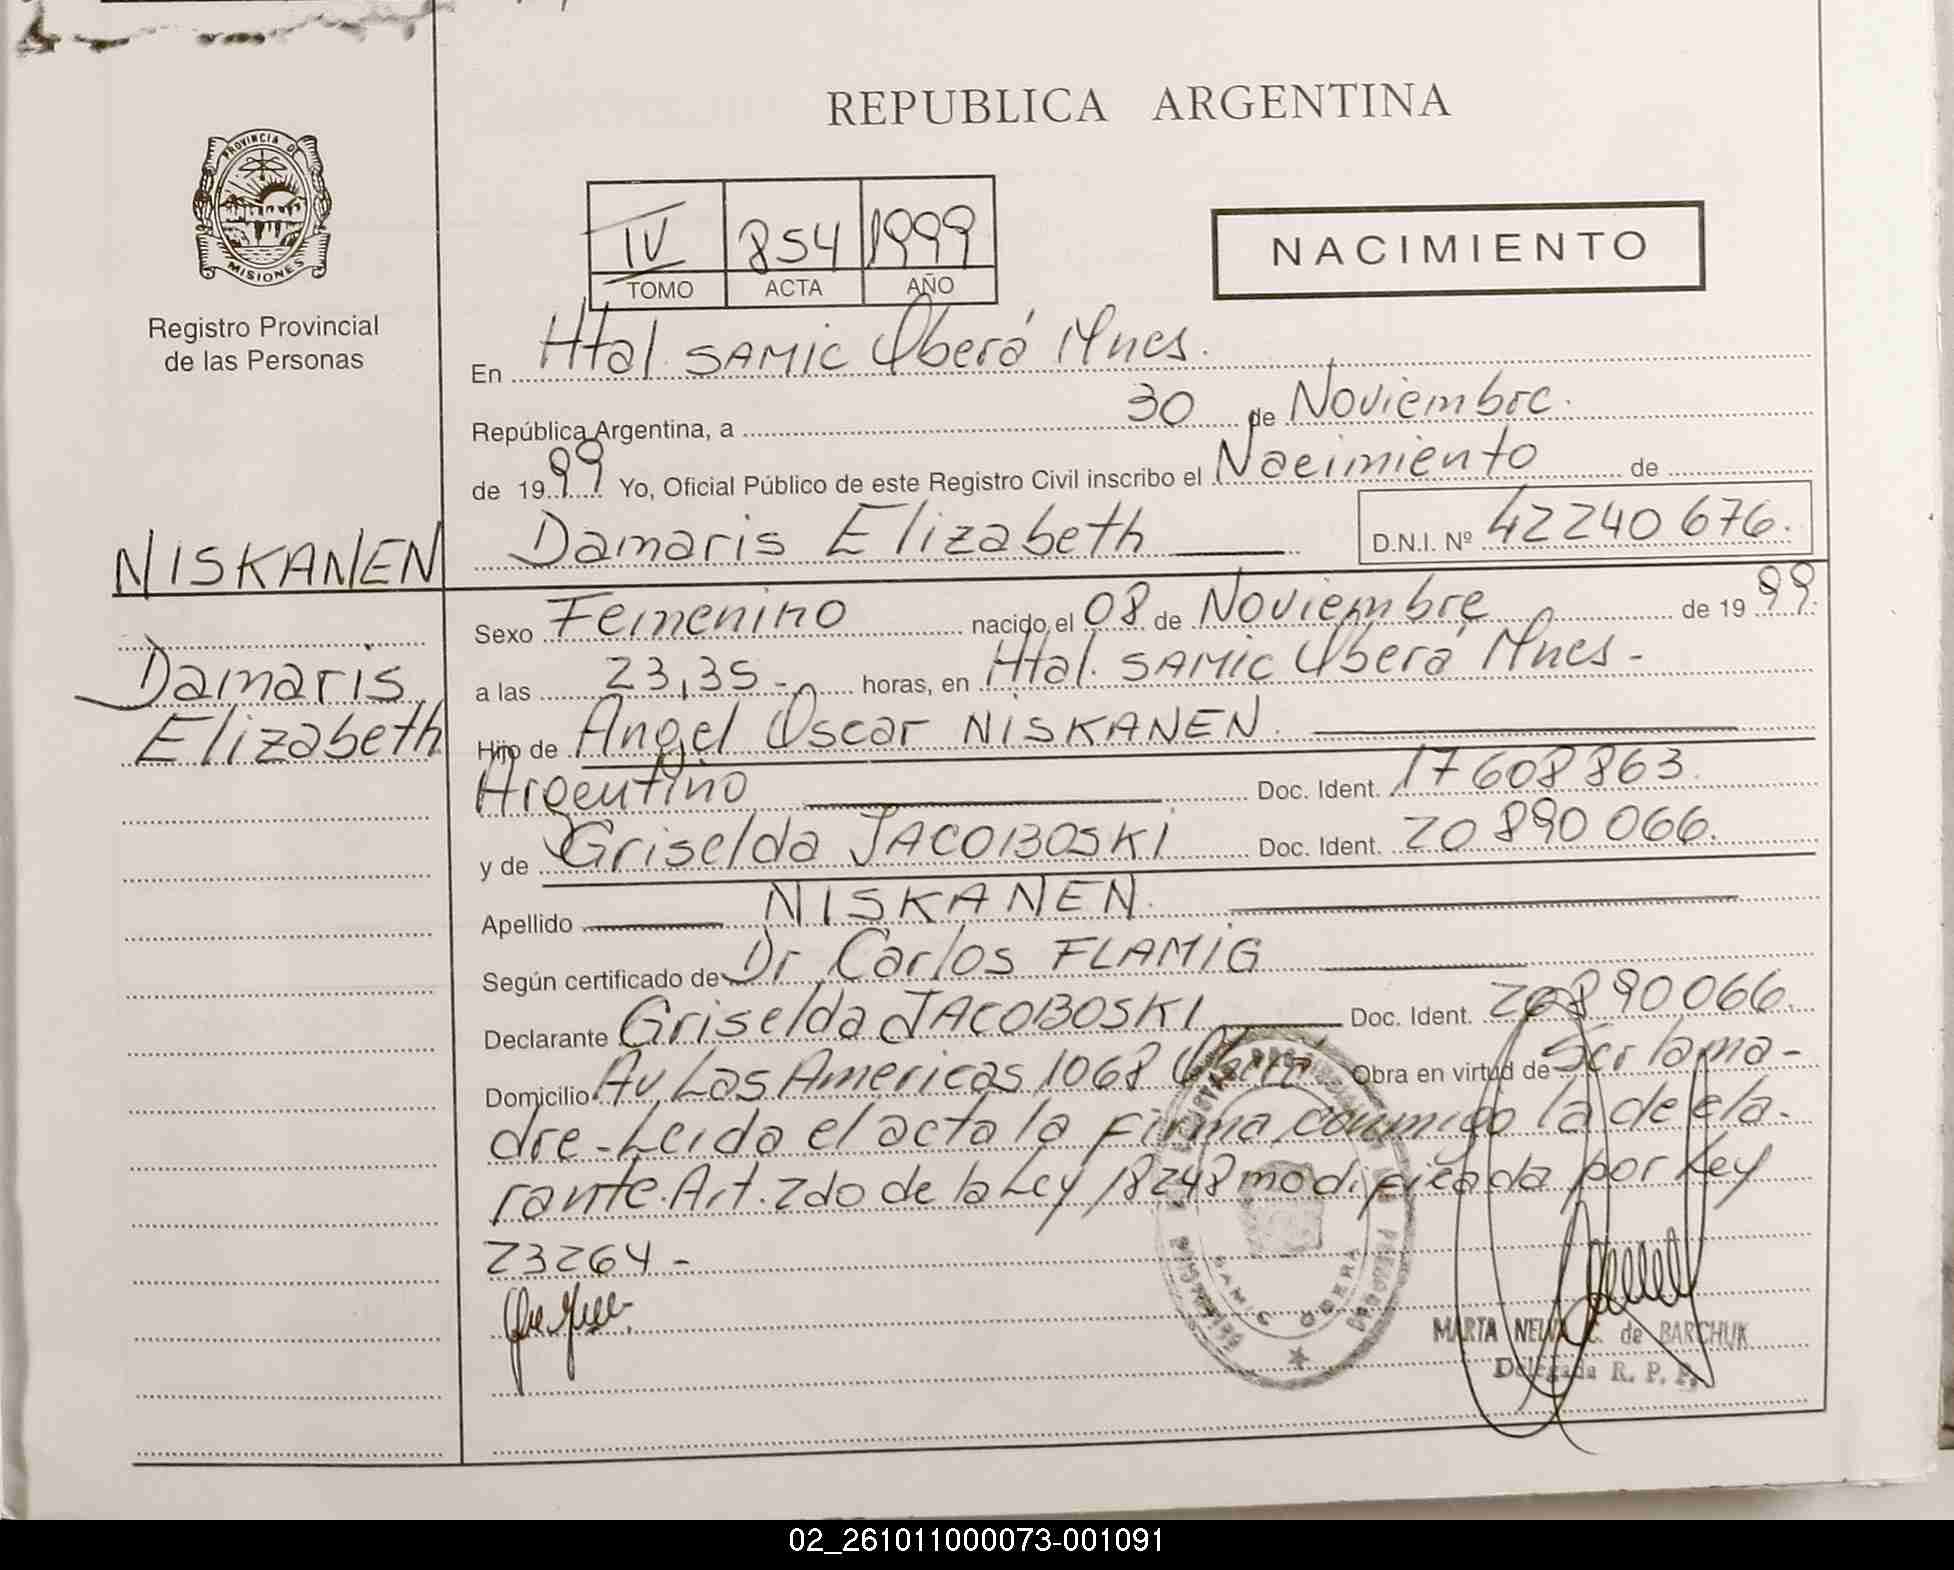 REPUBLICA ARGENTINA
PROVINCIA DE
MISIONES
Registro Provincial
de las Personas
IV 854 1999
TOMO ACTA AÑO
NACIMIENTO
En Htal. SAMIC Oberá Mnes.
República Argentina, a 30 de Noviembre.
de 1999 Yo, Oficial Público de este Registro Civil inscribo el Nacimiento de
Damaris Elizabeth D.N.I. Nº 42240676.
NISKANEN
Damaris
Elizabeth
Sexo Femenino nacido el 08 de Noviembre de 1999.
a las 23,35- horas, en Htal. SAMIC Oberá Mnes-
Hijo de Angel Oscar NISKANEN.
Argentino Doc. Ident. 17608863.
y de Griselda JACOBOSKI Doc. Ident. 20890066.
Apellido NISKANEN.
Según certificado de Dr Carlos FLAMIG
Declarante Griselda JACOBOSKI Doc. Ident. 20890066.
Domicilio Av. Las Americas 1068 Oberá Obra en virtud de Ser la ma-
dre-Leida el acta la firma conmigo la decla-
rante. Art. 2do de la Ley 18248 modificada por Ley
23264-
SAMIC OBERA
MARTA NELIDA C. de BARCHUK
Delegada R. P. P.
02_261011000073-001091